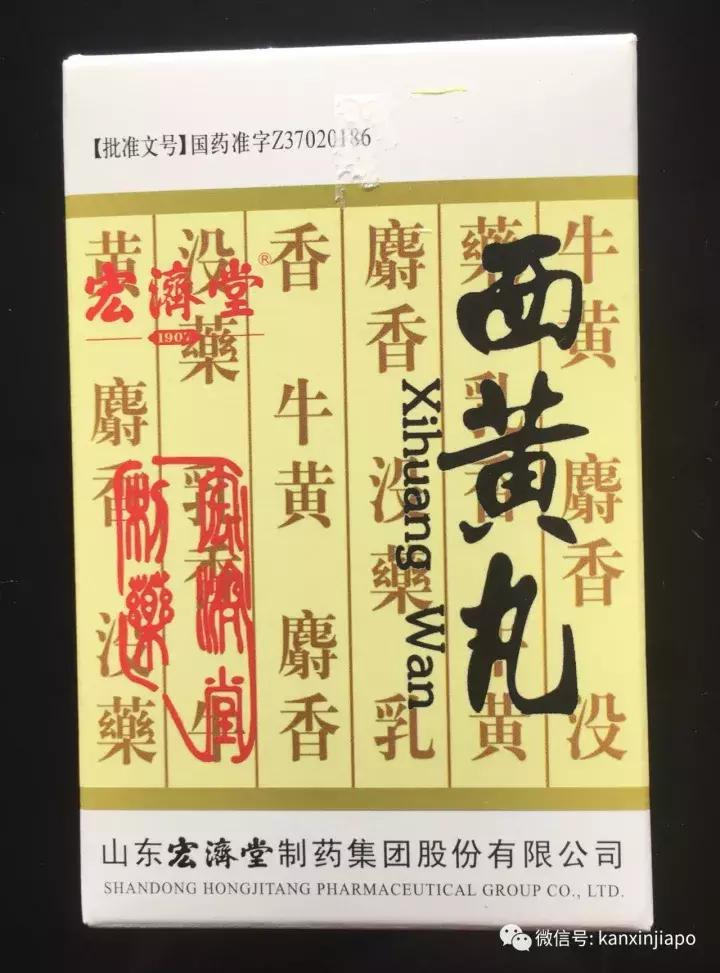 【批准文号】国药准字Z37020186
宏濟堂®
1907
西黄丸
Xihuang Wan
牛黄 麝香 没
藥 乳香 牛黄
麝香 没藥 乳
香 牛黄 麝香
没藥 乳香 牛
黄 麝香 没藥
宏濟堂
制藥
山东宏濟堂制药集团股份有限公司
SHANDONG HONGJITANG PHARMACEUTICAL GROUP CO., LTD.
微信号: kanxinjiapo